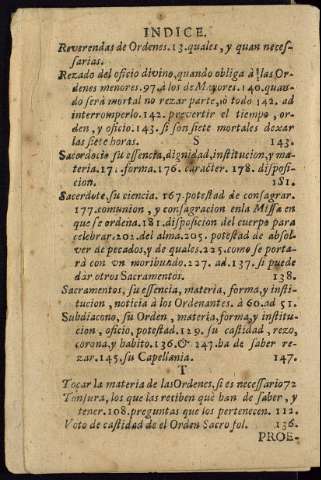 INDICE.
Reverendas de Ordenes.13.quales, y quan neces-
sarias.
Rezado del oficio divino,quando obliga à las Or-
denes menores.97.à los de Mayores.140.quan-
do serà mortal no rezar parte,ò todo 142. ad
interromperlo.142.prevertir el tiempo, or-
den, y oficio.143. si son siete mortales dexar
las siete horas. 143.
S
Sacerdocio su essencia,dignidad,institucion,y ma-
teria.171.forma.176. caracter. 178. disposi-
cion. 181.
Sacerdote,su ciencia. 167.potestad de consagrar.
177.comunion, y consagracion enla Missa en
que se ordena.181.disposicion del cuerpo para
celebrar.202.del alma.205. potestad de absol-
ver de pecados,y de quales.225.como se porta-
rà con un moribundo.227. ad.137.si puede
dar otros Sacramentos. 138.
Sacramentos, su essencia, materia, forma,y insti-
tucion, noticia à los Ordenantes. à 60.ad 51.
Subdiacono, su Orden, materia,forma,y institu-
cion, oficio, potestad.129. su castidad, rezo,
corona,y habito.136.& 147.ha de saber re-
zar.145.su Capellania. 147.
T
Tocar la materia de lasOrdenes,si es necessario72
Tonsura, los que las reciben què han de saber, y
tener.108.preguntas que los pertenecen. 112.
Voto de castidad de el Orden Sacro fol. 136.
PROE-